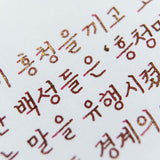 홍청을 끼고
백성들은, 흥청
말을 유행시켰
경계의